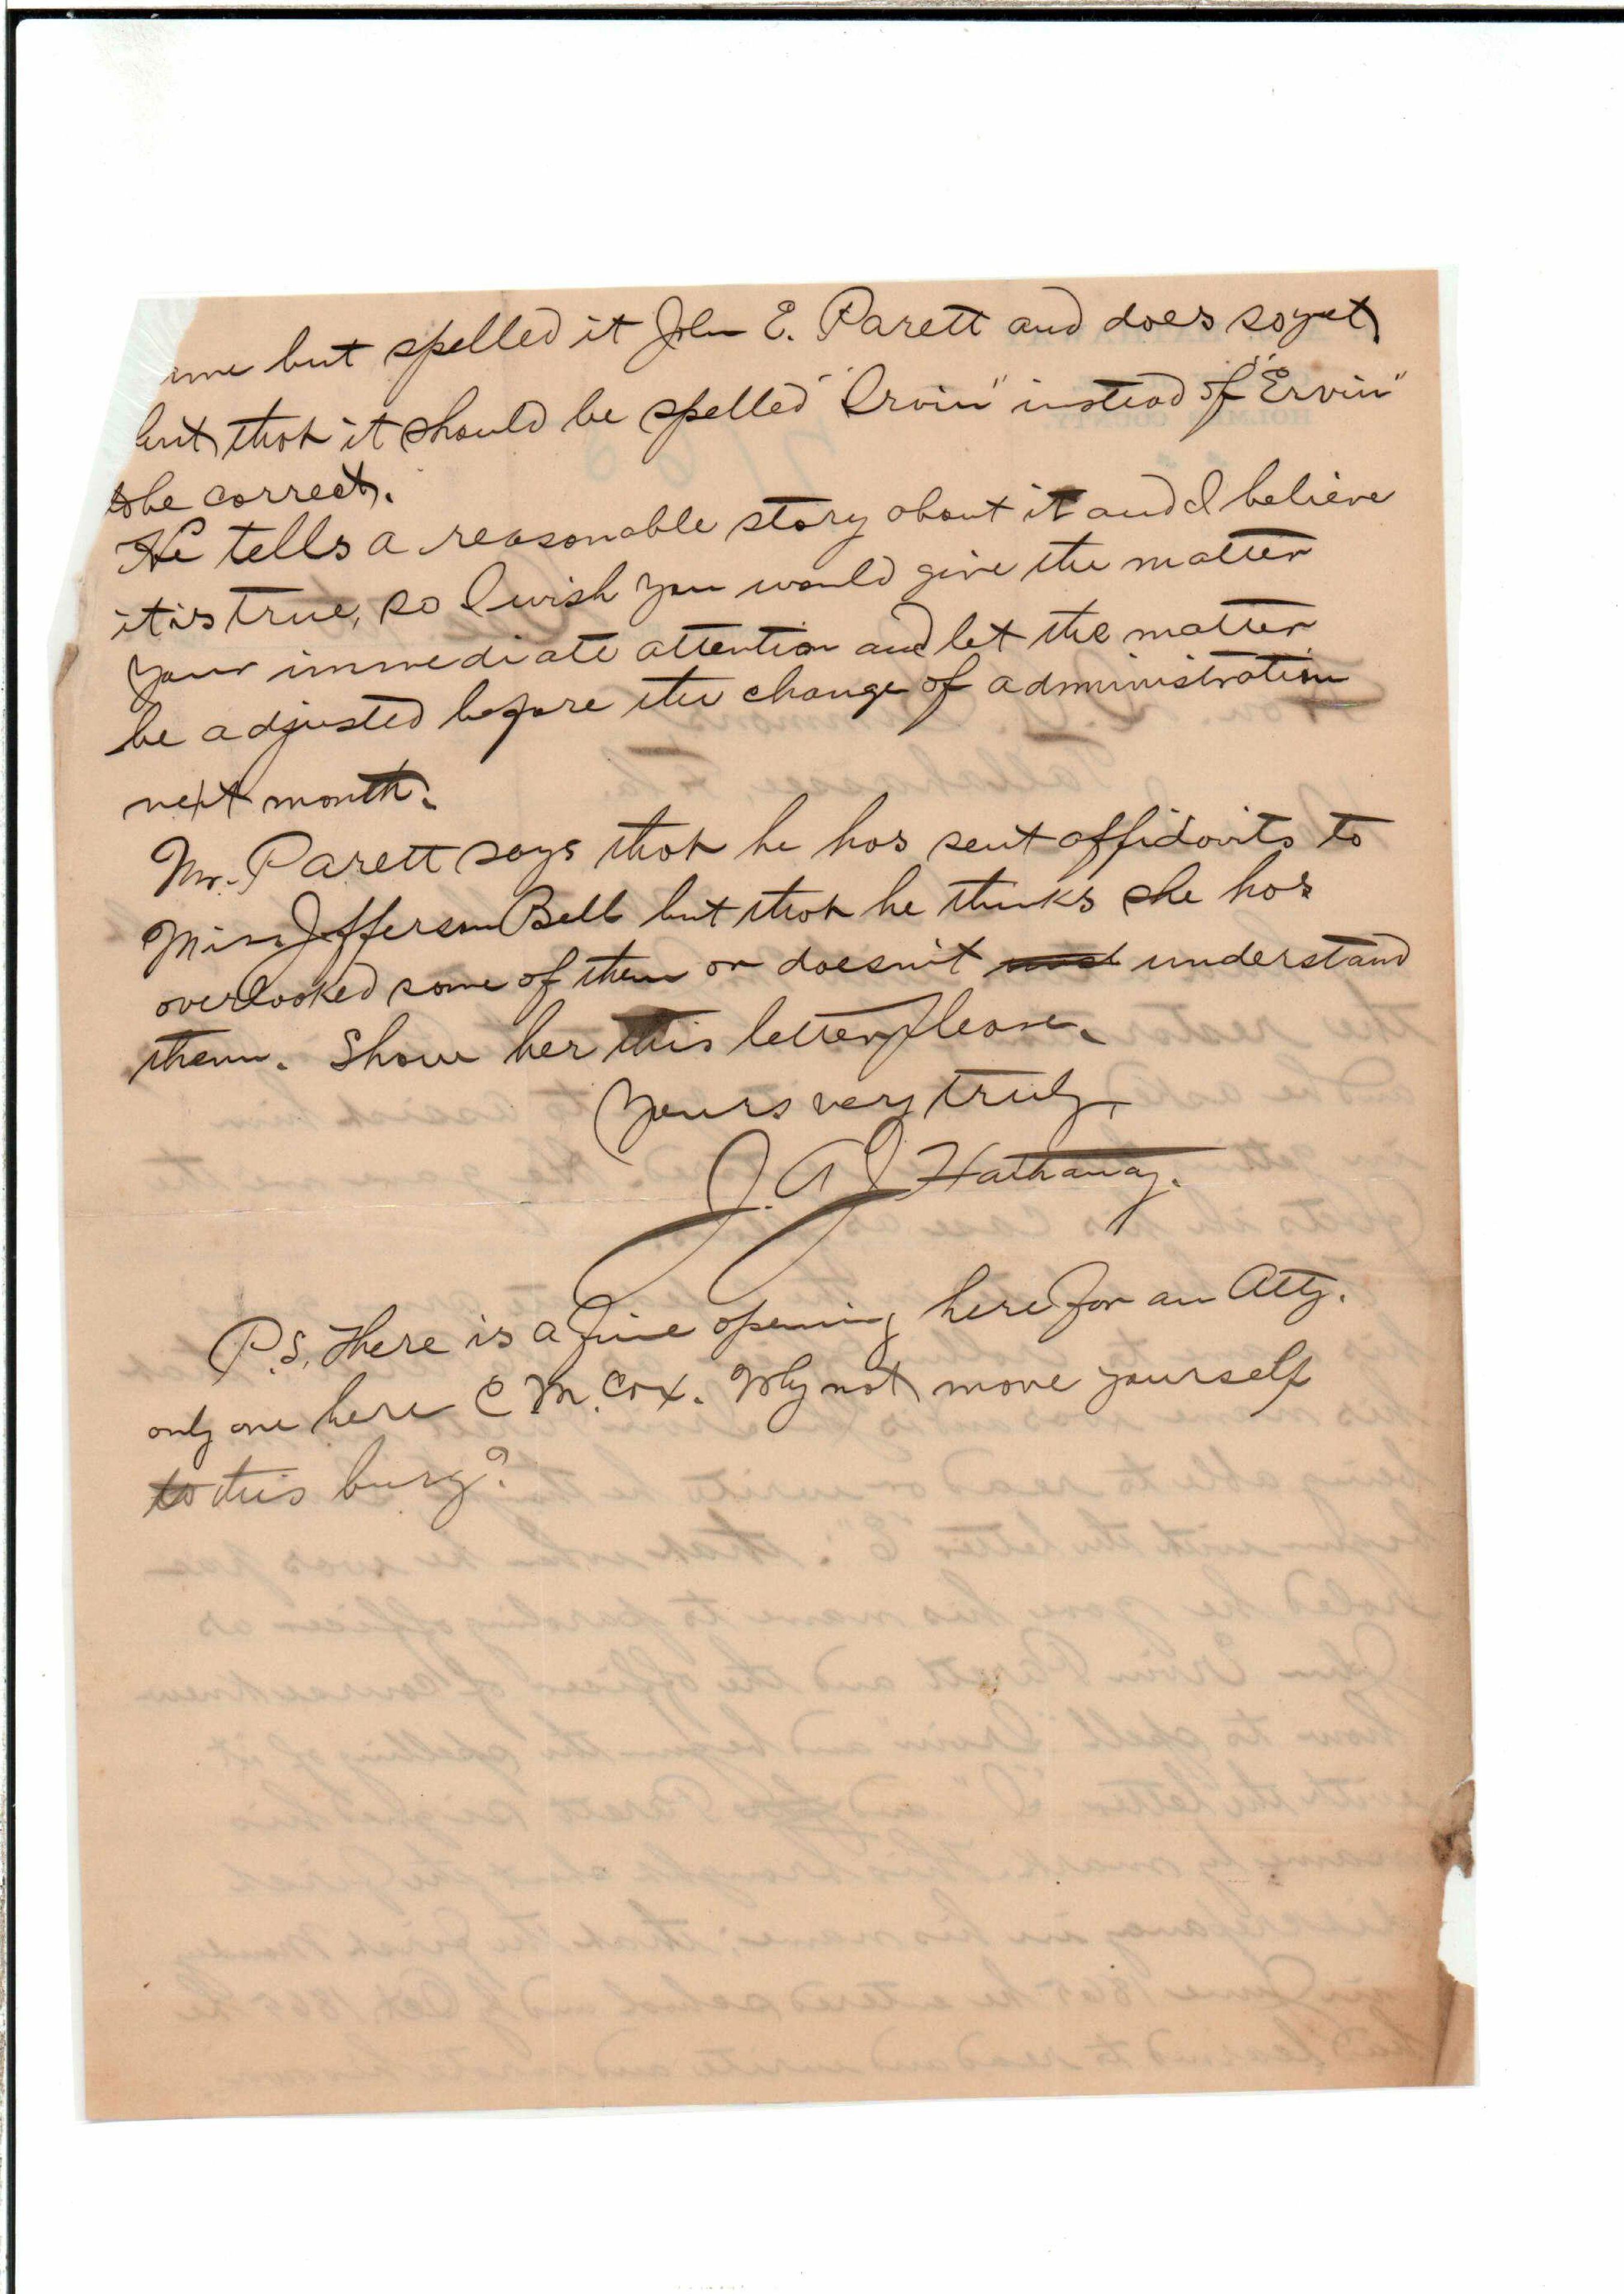 ame but spelled it John E. Parett and does so yet,
but that it should be spelled "Irvin" instead of "Ervin"
to be correct.
He tells a reasonable story about it and I believe
it is true, so I wish you would give the matter
your immediate attention and let the matter
be adjusted before the change of administration
next month.
Mr. Parett says that he has sent affidavits to
Miss Jefferson Bell but that he thinks she has
overlooked some of them or doesn't understand
them. Show her this letter please.
Yours very truly,
J. A J Hathaway.
P.S. There is a fine opening here for an Atty.
only one here C M. Cox. Why not move yourself
to this burg?